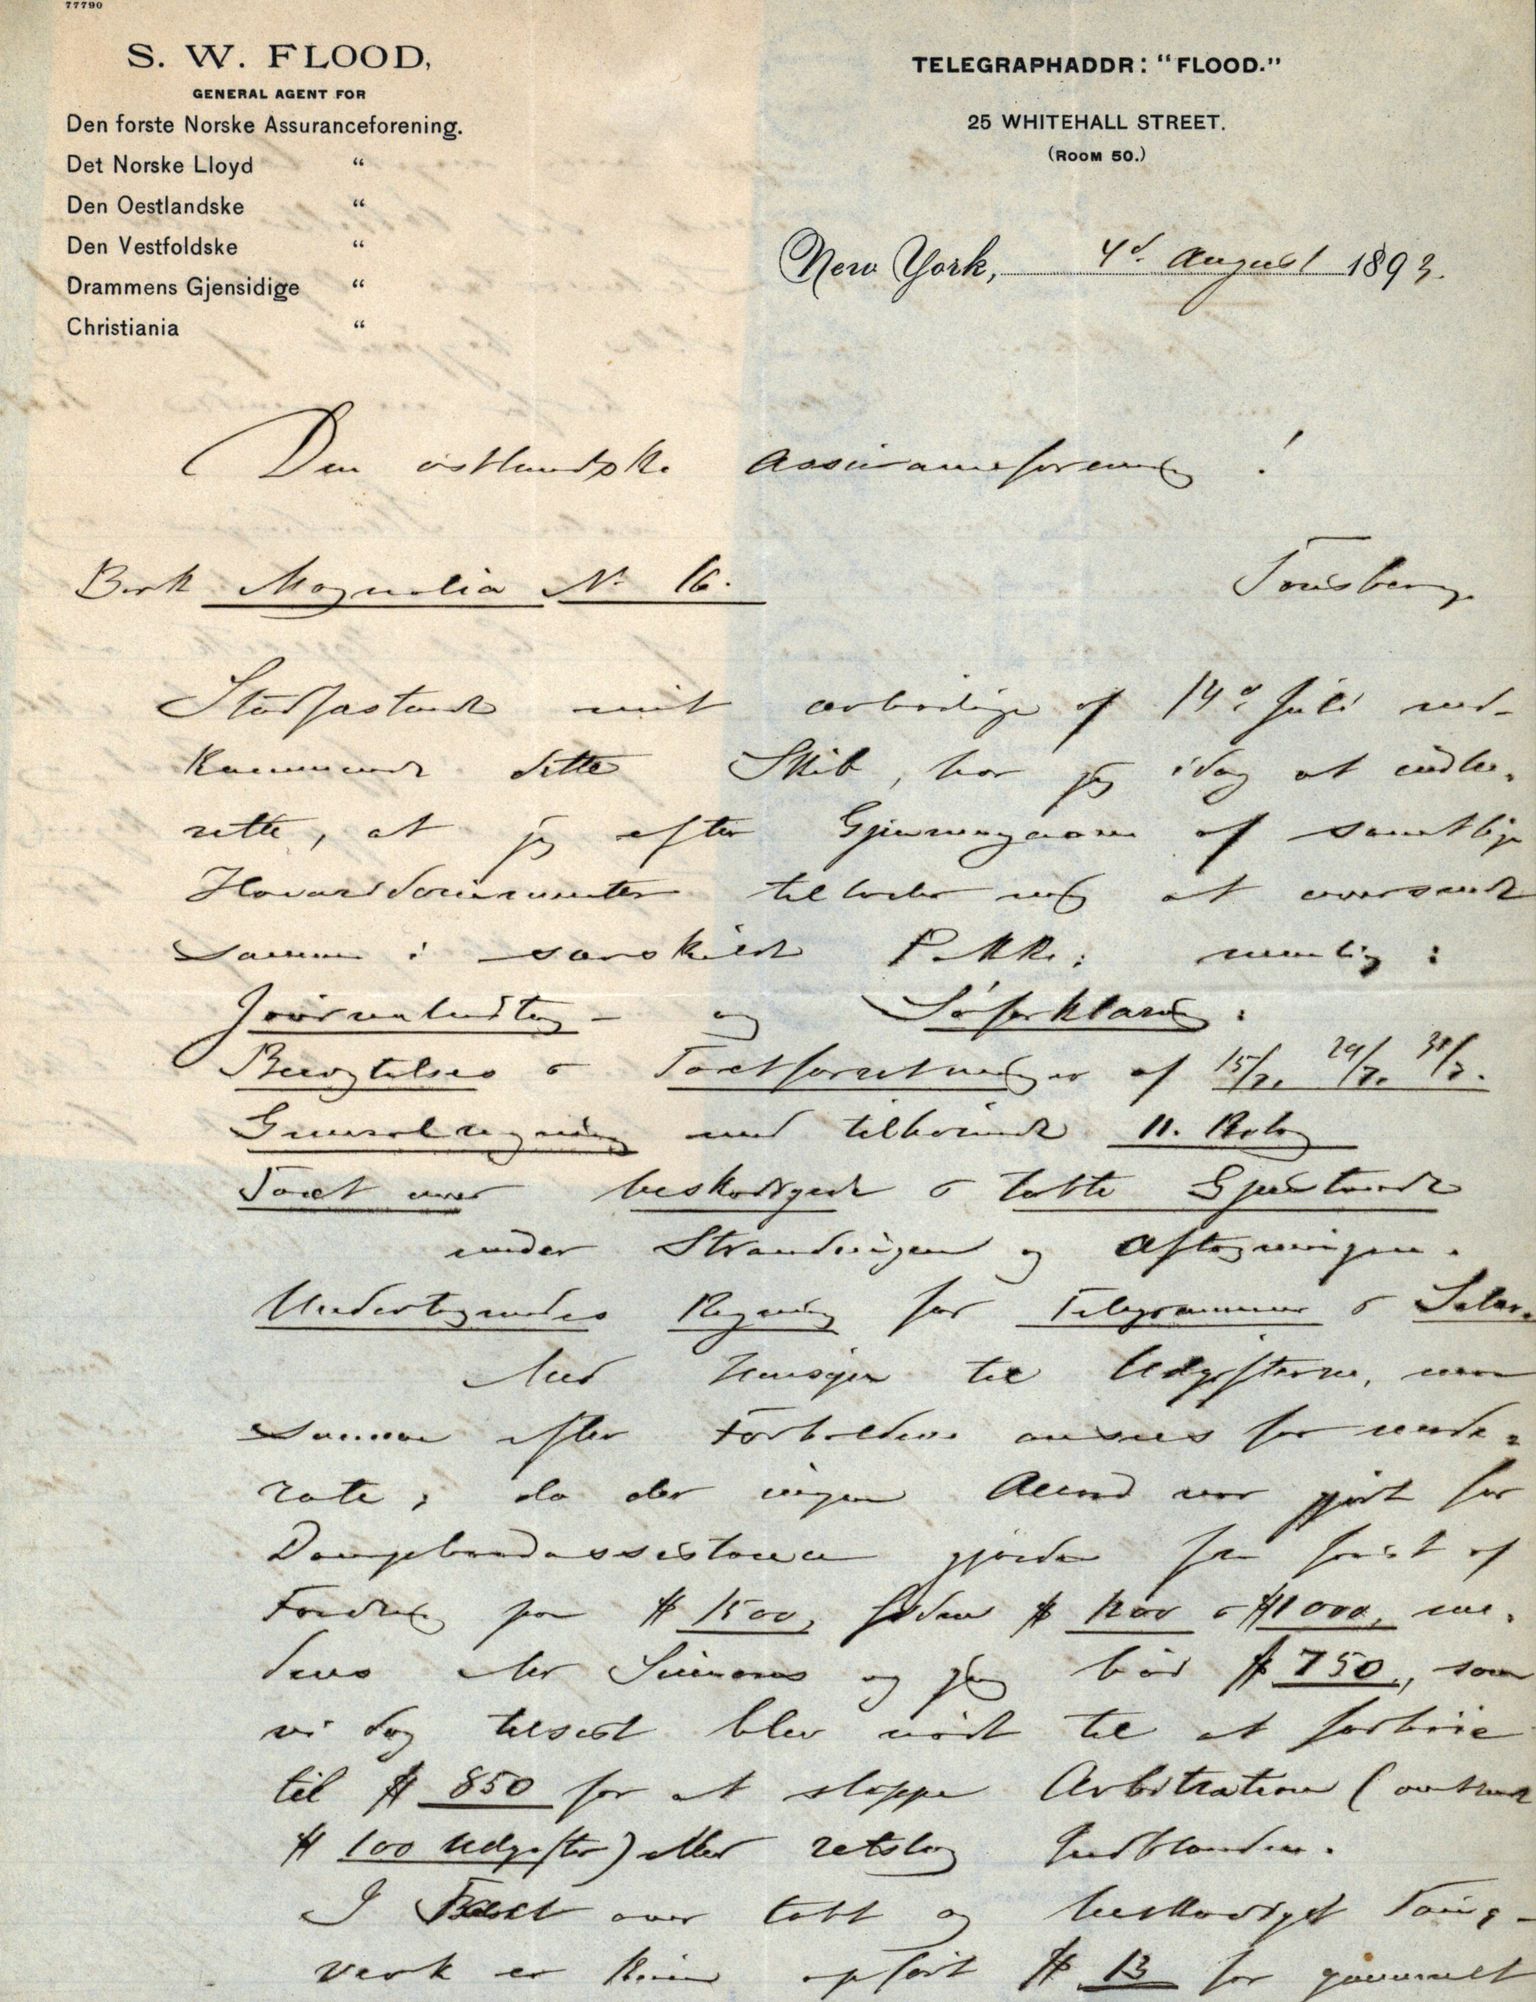 77790
S. W. FLOOD,
GENERAL AGENT FOR
Den forste Norske Assuranceforening.
Det Norske Lloyd "
Den Oestlandske "
Den Vestfoldske "
Drammens Gjensidige "
Christiania "
TELEGRAPHADDR: "FLOOD."
25 WHITEHALL STREET.
(ROOM 50.)
New York, 4d. August 1893.
Den østlandske Assuranceforening!
Bark Magnolia No 16.
Tønsberg
Stadfæstende mit ærbødige af 14d Juli ved-
kommende dette Skib, har jeg idag at indbe-
rette, at jeg efter Gjennemgaaen af samtlige
Havaridocumenter tillader mig at oversende
samme i særskildt Pakke; nemlig:
Journaludtog - og Søforklaring:
Besigtelses & Taxtforretninger af 15/7. 29/7. 31/7.
Generalregning med tilhørende 11. Bilag
Taxt over beskadigede & tabte Gjenstande
under Strandingen og Aftagningen.
Undertegnedes Regning for Telegrammer & Salær.
Med Hensyn til Udgifterne, maa
samme efter Forholdene ansees for mode-
rate; da der ingen Accord var gjort for
Dampbaadassistancen gjordes fra først af
Fordring paa $ 1500, siden $ 1200 & $ 1000, me-
dens Mr Simmons og jeg bød $ 750, som
vi dog tilsidst blev nødt til at forhøie
til $ 850 for at slippe Arbitration (omtrent
$ 100 Udgifter) eller retslig Indblanden.
I Taxt over tabt og beskadiget Toug-
verk er kun opført $ 13 for gammelt